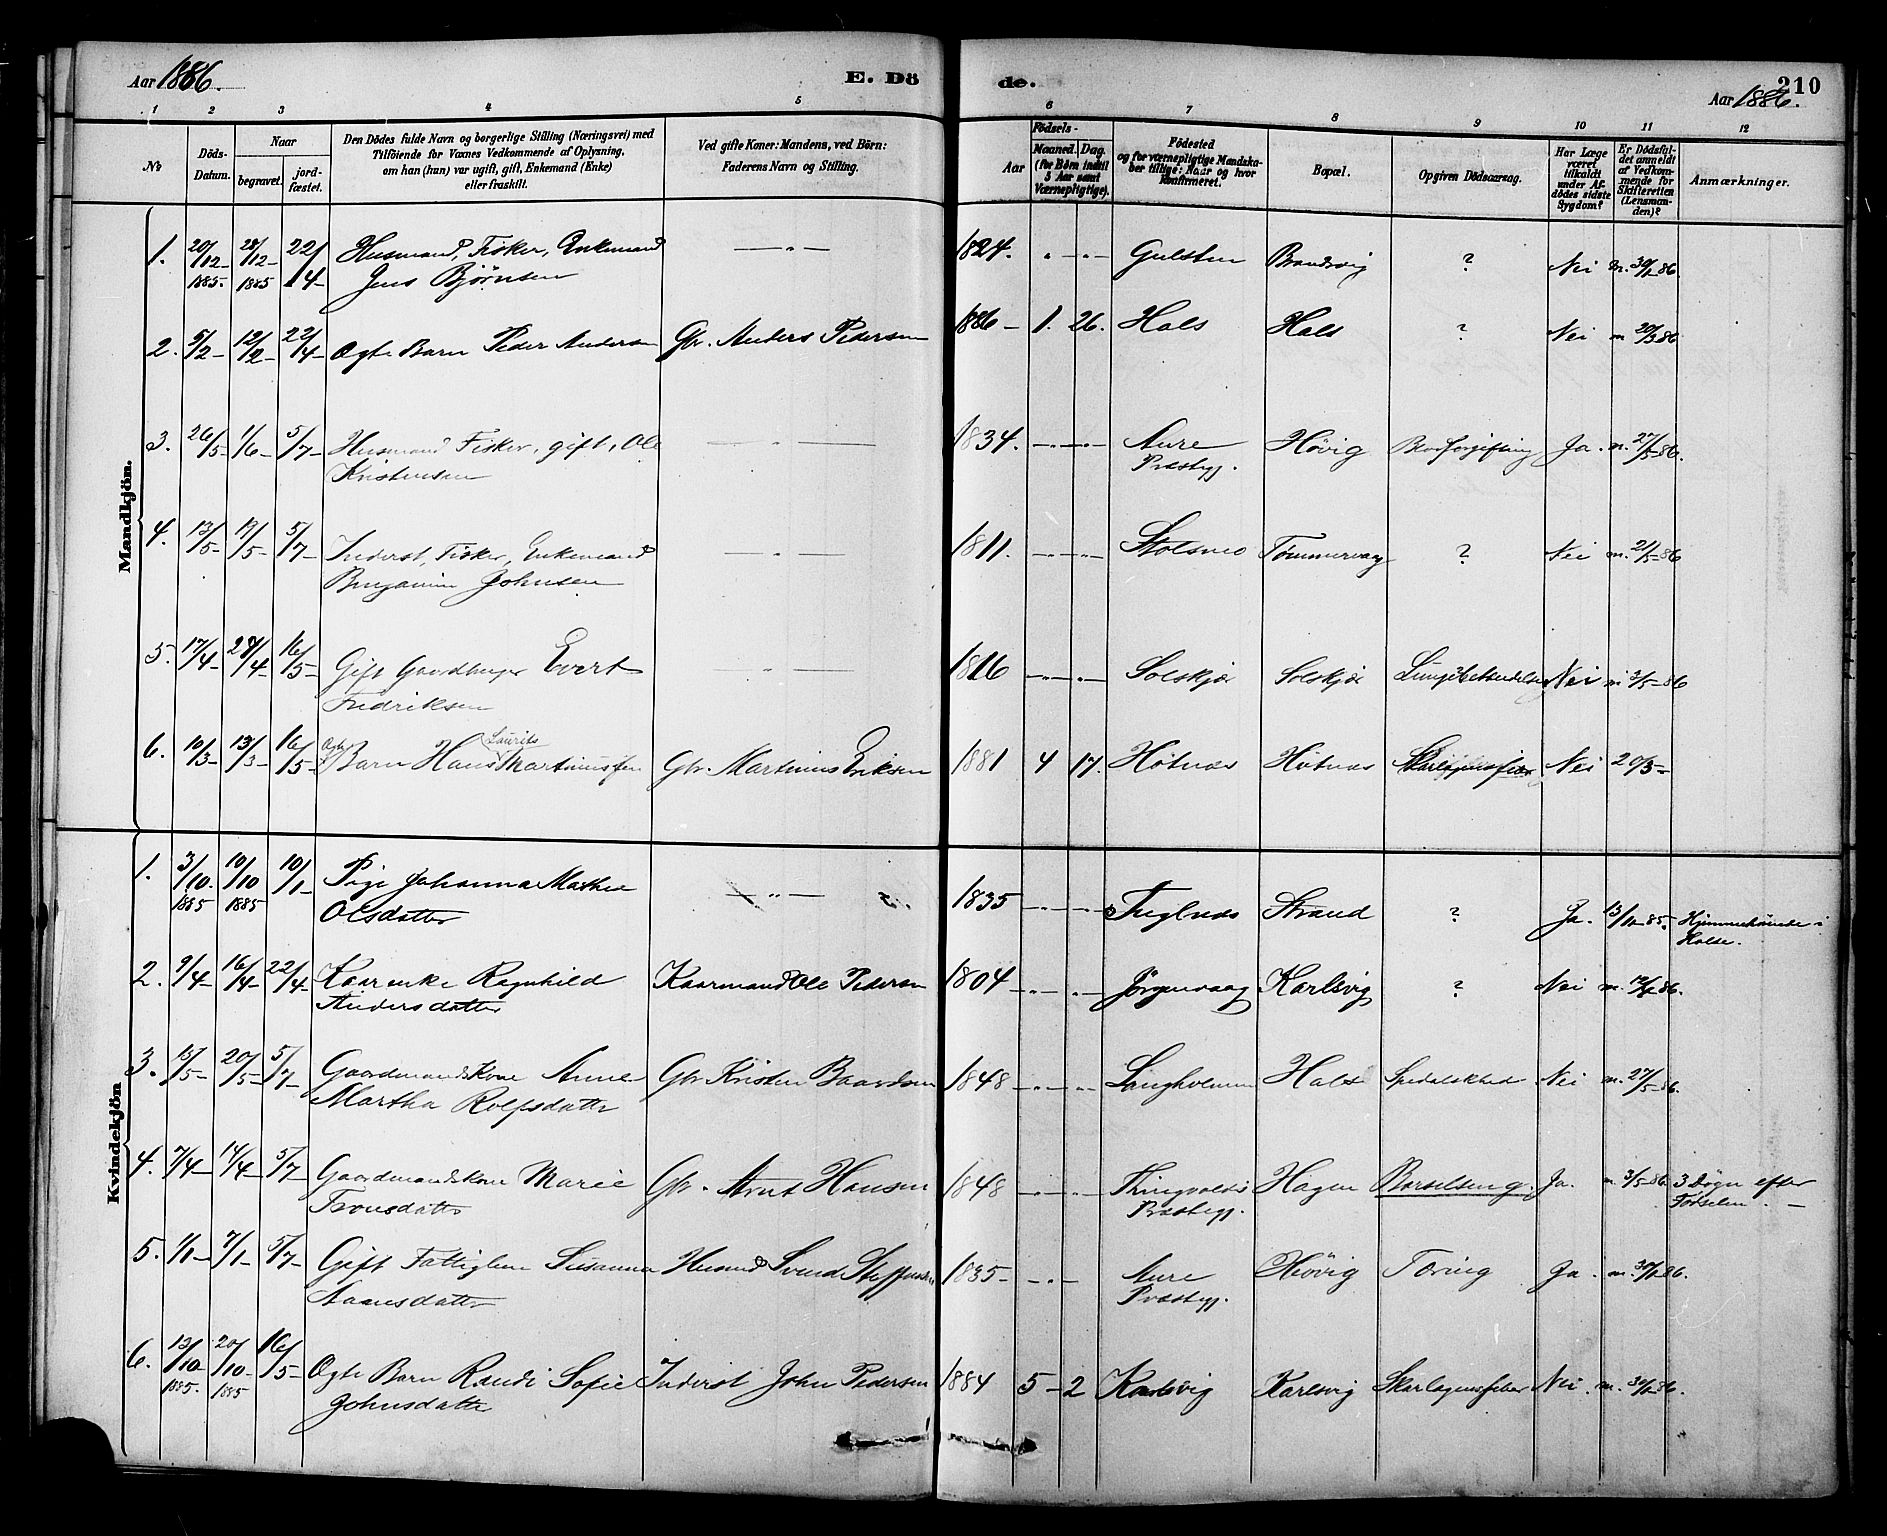 Aar 1886.
E. Dö
de.
210
Aar 1886.
1 2 3 4 5 6 7 8 9 10 11 12
№
Döds-
Datum.
Naar
begravet.
jord-
fæstet.
Den Dödes fulde Navn og borgerlige Stilling (Næringsvei) med
Tilföiende for Voxnes Vedkommende af Oplysning,
om han (hun) var ugift, gift, Enkemand (Enke)
eller fraskilt.
Ved gifte Koner: Mandens, ved Börn:
Faderens Navn og Stilling.
Födsels-
Aar
Maaned. Dag.
(for Börn indtil
5 Aar samt
Værnepligtige).
Födested
og for værnepligtige Mandska-
ber tillige: Naar og hvor
konfirmeret.
Bopæl.
Opgiven Dödsaarsag.
Har Læge
været
tilkaldt
under Af-
dödes sidste
Sygdom?
Er Dödsfal-
det anmeldt
af Vedkom-
mende for
Skifteretten
(Lensman-
den)?
Anmærkninger.
Mandkjön.
1. 20/12 1885. 28/12 1885 22/4 Husmand, Fisker, Enkemand — „ — 1824. „ — „ — Brandsvig ? Nei
Jens Björnsen
2. 5/2 12/2 22/4 Ægte Barn Peder Andersen Gbr. Anders Pedersen 1886 1. 26. Hals Hals ? Nei m. 20/3 86
3. 26/5 1/6 5/7 Husmand Fisker, gift, Ole — „ — 1834. — „ — „ — Aure Hövig Blodforgiftning Ja. m. 27/5 86.
Kristensen Præstegj.
4. 13/5 19/5 5/7 Inderst, Fisker, Enkemand — „ — 1811. — „ — „ — Tömmervaag ? Nei m. 21/5 86
Benjamin Johnsen
5. 17/4 28/4 16/5 Gift Gaardbruger Evert — „ — 1816 — „ — „ — Solskjæ Solskjæ Lungebetændelse Nei m 3/5 86
Fredriksen
6. 10/3 13/3 16/5 Ægte Barn Hans Laurits Martinussen Gbr. Martinus Eriksen 1881 4 17. Hötnæs Hötnæs Skarlagensfeber Nei 20/3
Kvindekjön
1. 3/10 1885 10/10 1885 10/1 Pige Johanna Marthe — „ — 1835 — „ — „ — Fuglnæs Strand ? Ja. 13/10 85. Hjemmehörende i
Olsdatter Halse.
2. 9/4 16/4 22/4 Kaarenke Ragnhild Kaarmand Ole Pedersen 1804 — „ — „ — Jörgenvaag Karlsvig ? Nei m.
Andersdatter
3. 15/5 20/5 5/7 Gaardmandskone Anne Gbr. Kristen Baardsen 1848 — „ — „ — Langholmen Hals Spedalskhed Nei m. 27/5 86.
Martha Rolfsdatter
4. 7/4 14/4 5/7 Gaardmandskone Marie Gbr. Arnt Hansen 1848 — „ — „ — Thingvolds Hagen Barselseng. Ja. m. 3/5 86. 3 Dögn efter
Tronsdatter Præstegj. Födselen.
5. 1/1 7/1 5/7 Gift Fattiglem Susanna Husmd Svend Steffensen 1835 — „ — Aure Hövig Tæring Ja.
Præstegj.
6. 13/10 1885. 20/10 1885 16/5 Ægte Barn Randi Sofie Inderst John Pedersen 1884 5 2 Karlsvig Karlsvig Skarlagensfeber Nei.
Johnsdatter